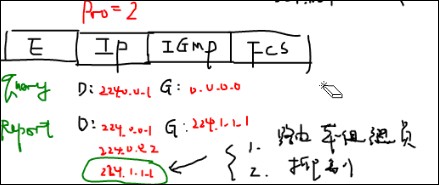 Pro=2
E Ip IGmp Fcs
Query D: 224.0.0.1 G: 0.0.0.0
Report D: 224.0.0.1 G: 224.1.1.1
224.0.0.2
224.1.1.1
1. 路由 组组员
2. 抑